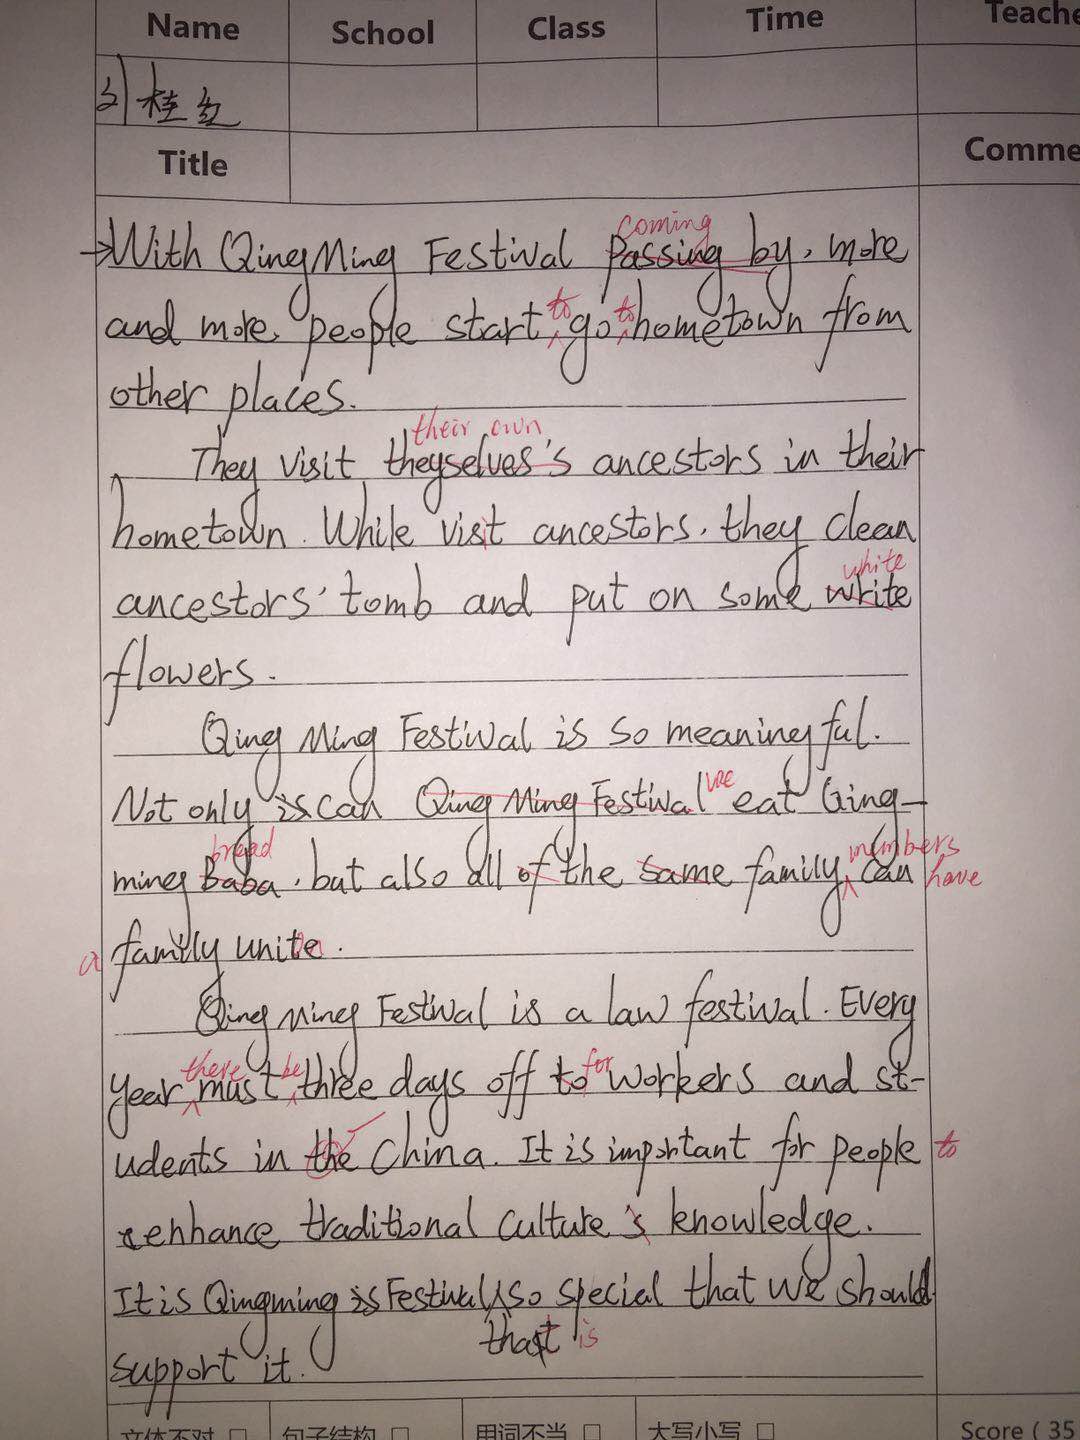 Name School Class Time Teache
刘桂红
Title Comme
coming
With QingMing Festiwal Passing by, more
to to
and more, people start go hometown from
other places.
their own
They visit theyselves's ancestors in their
hometown. While visit ancestors, they clean
white
ancestors' tomb and put on some write
flowers.
Qing Ming Festiwal is so meaningful.
we
Not only is can Qing Ming Festiwal eat Qing-
bread members
ming Baba, but also all of the same family can have
a family unite.
Qing Ming Festiwal is a law festiwal. Every
there be for
year must three days off to workers and st-
udents in the China. It is important for people to
enhance traditional culture's knowledge.
It is Qingming is Festiwal so special that we should
that is
support it.
文体不对 □ 句子结构 □ 用词不当 □ 大写小写 □ Score ( 35